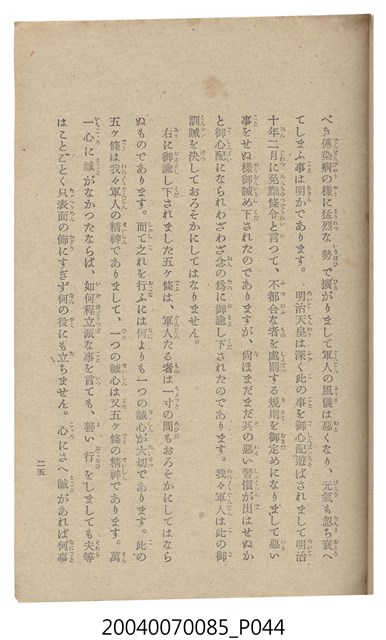 べき傳染病の樣に猛烈な勢で擴がりまして軍人の風儀は惡くなり、元氣も忽ち衰へ
てしまふ事は明かであります。 明治天皇は深く此の事を御心配遊ばされまして明治
十年二月に免黜條令と言つて、不都合な者を處罰する規則を御定めになりまして惡い
事をせぬ樣御誡め下されたのでありますが、尙ほまだまだ其の惡い習慣が出はせぬか
と御心配になられわざわざ念の爲に御諭し下されたのであります。我々軍人は此の御
訓誡を決しておろそかにしてはなりません。
右に御諭し下されました五ケ條は、軍人たる者は一寸の間もおろそかにしてはなら
ぬものであります。而て之れを行ふには何よりも一つの誠心が大切であります。此の
五ケ條は我々軍人の精神でありまして、一つの誠心は又五ケ條の精神であります。萬
一心に誠がなかつたならば、如何程立派な事を言ても、善い行をしましても夫等
はことごとく只表面の飾にすぎず何の役にも立ちません。心にさへ誠があれば何事
二五
20040070085_P044